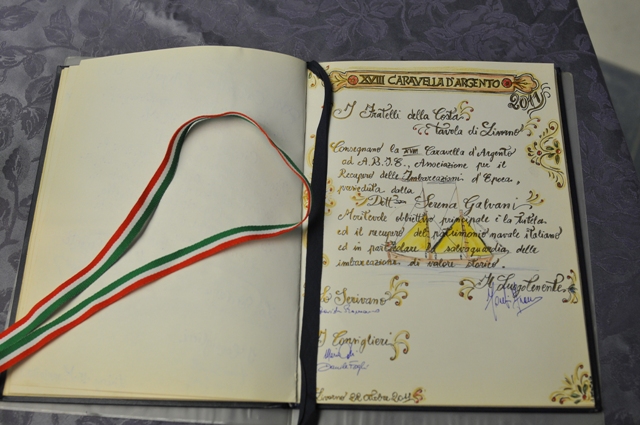 XVIII CARAVELLA D'ARGENTO
2011
I Fratelli della Costa
Tavola di Livorno
Consegnano la XVIII Caravella d'Argento
ad A.R.I.E., Associazione per il
Recupero delle Imbarcazioni d'Epoca,
presieduta dalla
Dott.ssa Serena Galvani
Meritevole obbiettivo principale è la tutela
ed il recupero del patrimonio navale italiano
ed in particolare la salvaguardia delle
imbarcazioni di valore storico.
Il Luogotenente
Lo Scrivano
I Consiglieri
Livorno 22 Ottobre 2011